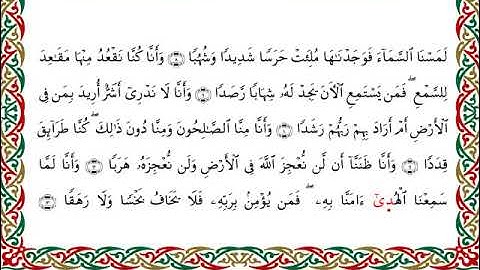 لَمَسْنَا ٱلسَّمَآءَ فَوَجَدْنَـٰهَا مُلِئَتْ حَرَسًا شَدِيدًا وَشُهُبًا ۝٨ وَأَنَّا كُنَّا نَقْعُدُ مِنْهَا مَقَـٰعِدَ
لِلسَّمْعِ ۖ فَمَن يَسْتَمِعِ ٱلْآنَ يَجِدْ لَهُۥ شِهَابًا رَّصَدًا ۝٩ وَأَنَّا لَا نَدْرِىٓ أَشَرٌّ أُرِيدَ بِمَن فِى
ٱلْأَرْضِ أَمْ أَرَادَ بِهِمْ رَبُّهُمْ رَشَدًا ۝١٠ وَأَنَّا مِنَّا ٱلصَّـٰلِحُونَ وَمِنَّا دُونَ ذَٰلِكَ ۖ كُنَّا طَرَآئِقَ
قِدَدًا ۝١١ وَأَنَّا ظَنَنَّآ أَن لَّن نُّعْجِزَ ٱللَّهَ فِى ٱلْأَرْضِ وَلَن نُّعْجِزَهُۥ هَرَبًا ۝١٢ وَأَنَّا لَمَّا
سَمِعْنَا ٱلْهُدَىٰٓ ءَامَنَّا بِهِۦ ۖ فَمَن يُؤْمِنۢ بِرَبِّهِۦ فَلَا يَخَافُ بَخْسًا وَلَا رَهَقًا ۝١٣